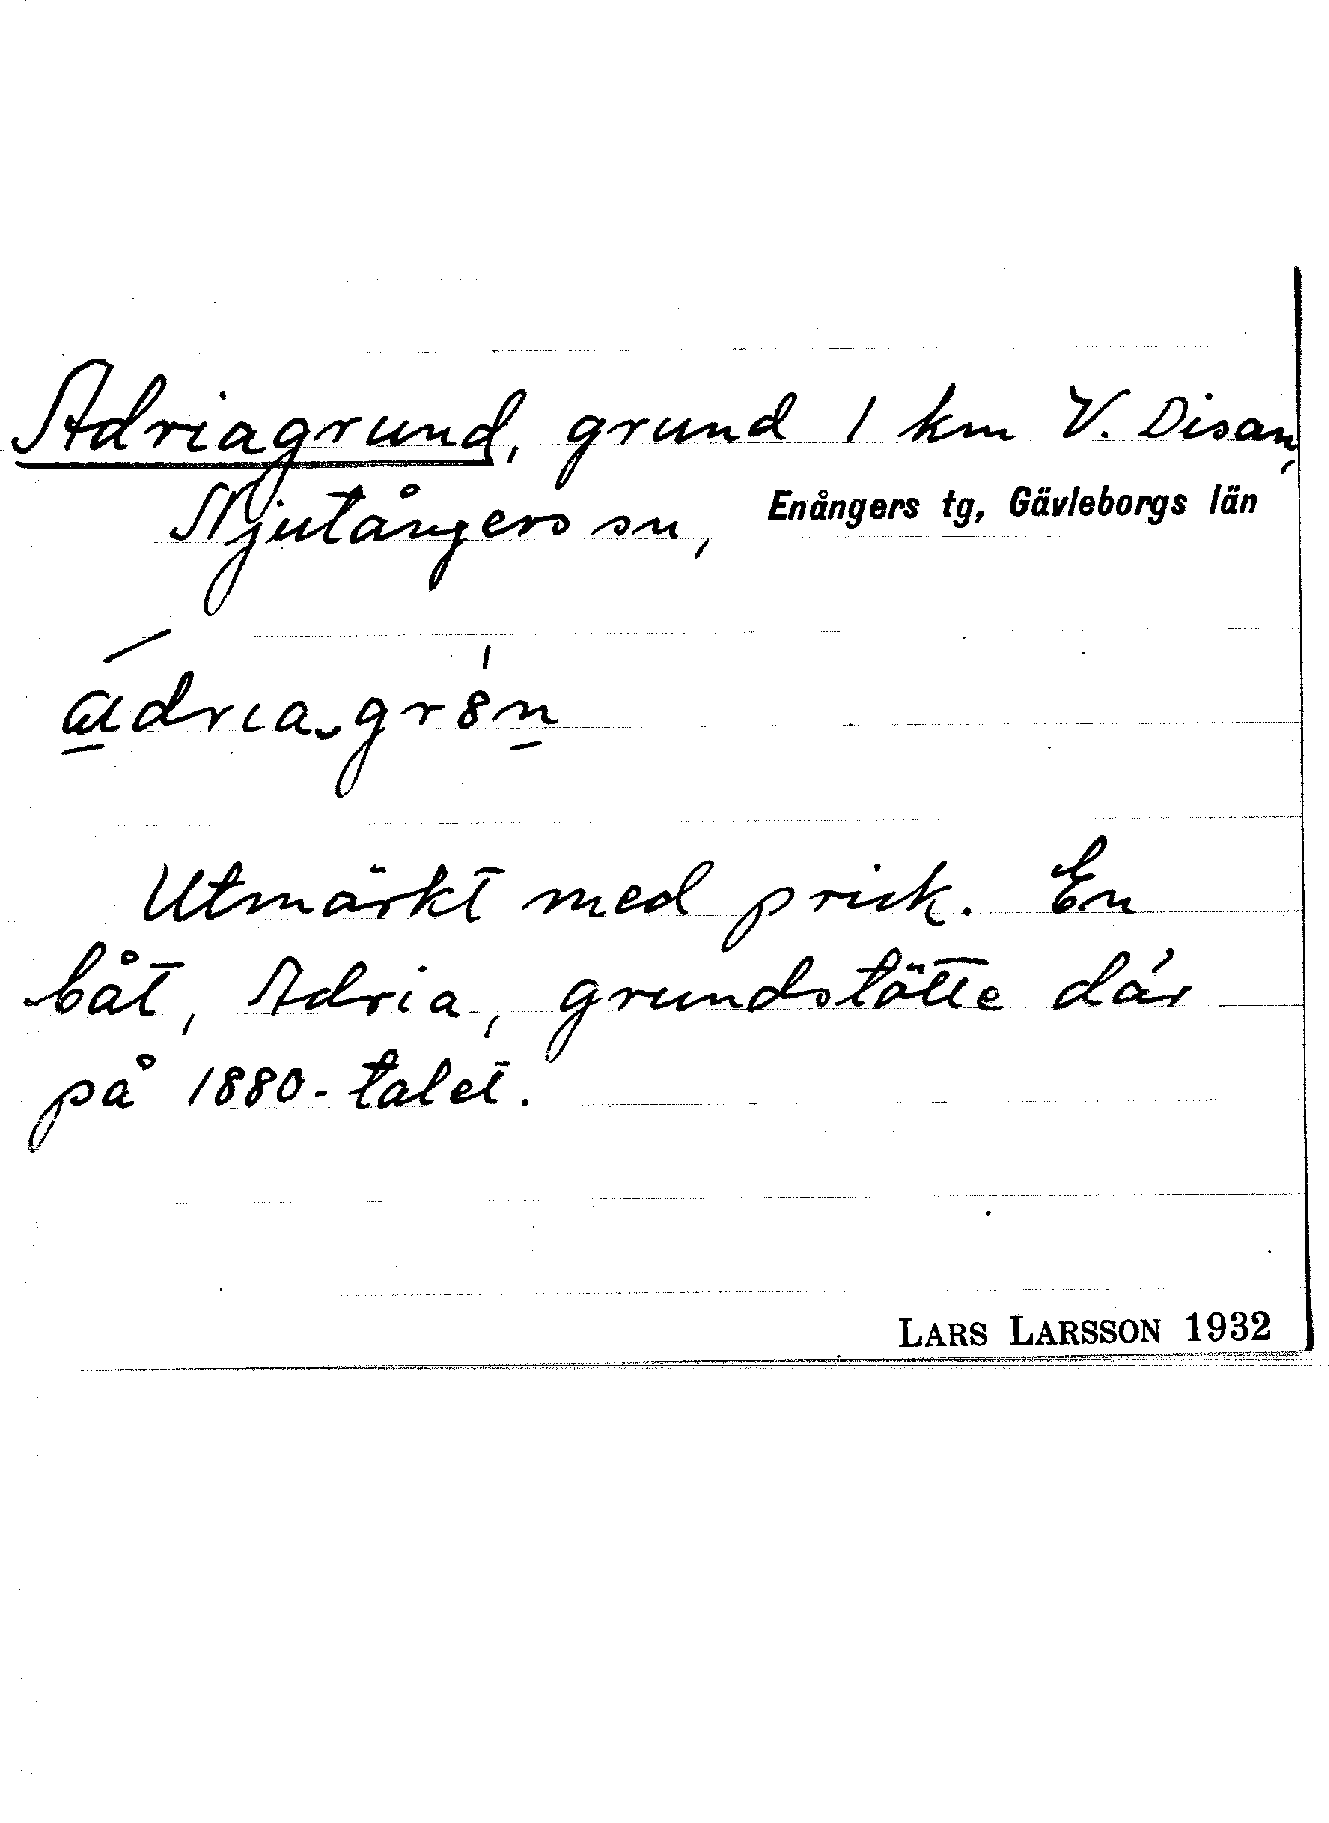 Adriagrund, grund 1 km V. Disan,
Njutångers sn, Enångers tg, Gävleborgs län
Utmärkt med prick. En
båt, Adria, grundstötte där
på 1880-talet.
LARS LARSSON 1932